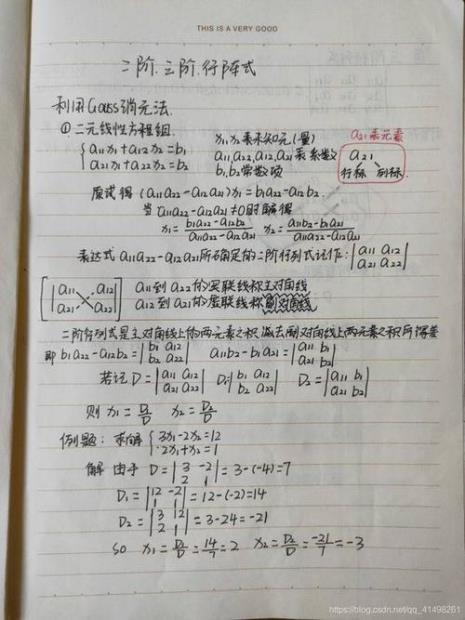 THIS IS A VERY GOOD
二阶.三阶.行阵式
利用Gauss消元法.
①二元线性方程组.
{a11x1+a12x2=b1
a21x1+a22x2=b2
x1,x2表未知元(量)
a11,a22,a12,a21表系数
b1,b2常数项
a21表元素
a21
行标 列标
原试得(a11a22-a12a21)x1=b1a22-a12b2.
当a11a22-a12a21≠0时解得
x1=(b1a22-a12b2)/(a11a22-a12a21) x2=(a11b2-b1a21)/(a11a22-a12a21)
表达式a11a22-a12a21所确定的二阶行列式记作:|a11 a12|
|a21 a22|
[|a11 a12|
|a21 a22|]
a11到a22的实联线称主对角线
a12到a21的虚联线称副对角线
二阶行列式是主对角线上的两元素之积减去副对角线上两元素之积所得差
即b1a22-a12b2=|b1 a12| a11b2-b1a21=|a11 b1|
|b2 a22| |a21 b2|
若记D=|a11 a12| D1=|b1 a12| D2=|a11 b1|
|a21 a22| |b2 a22| |a21 b2|
则x1=D1/D x2=D2/D
例题:求解{3x1-2x2=12
2x1+x2=1
解 由于D=|3 -2|=3-(-4)=7
|2 1|
D1=|12 -2|=12-(-2)=14
|1 1|
D2=|3 12|=3-24=-21
|2 1|
so x1=D1/D=14/7=2 x2=D2/D=-21/7=-3
https://blog.csdn.net/qq_41498261